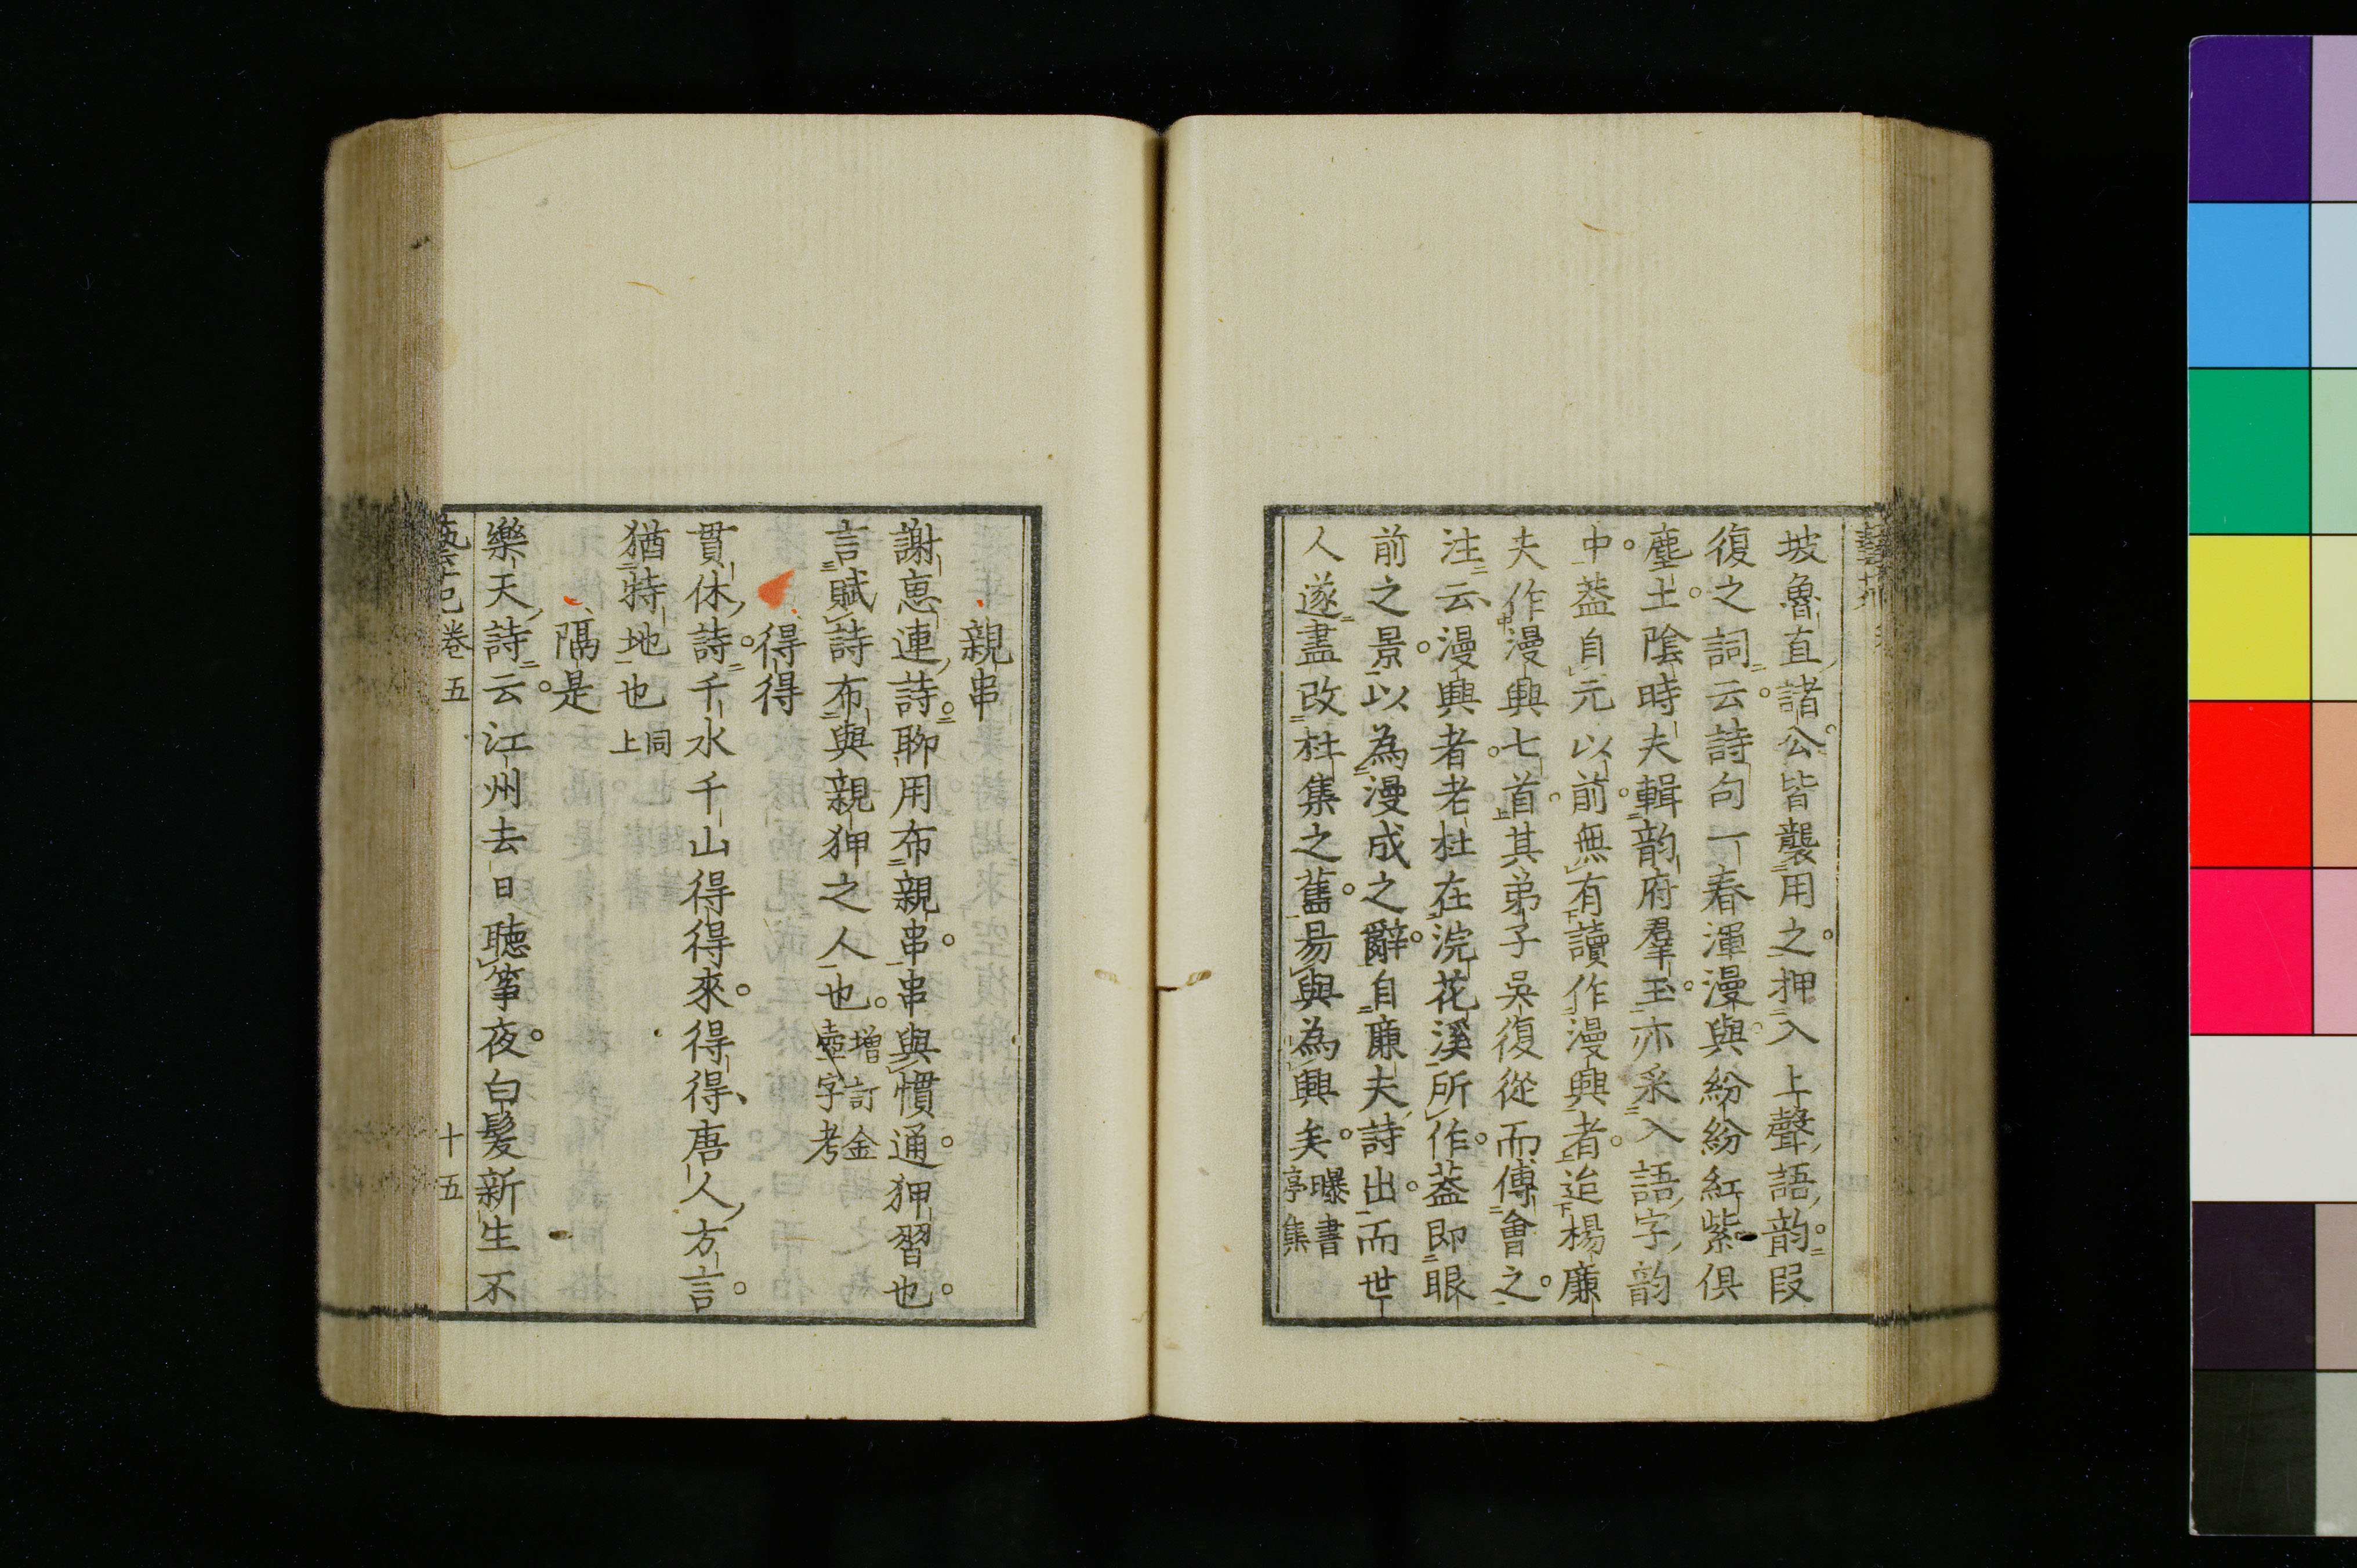 坡魯直諸公皆襲用之押入上聲語韵段
復之詞云詩句一春渾漫與紛紛紅紫俱
塵土陰時夫輯韵府羣玉亦采入語字韵
中蓋自元以前無有讀作漫興者迨楊廉
夫作漫興七首其弟子吳復從而傅會之
注云漫興者老杜在浣花溪所作蓋即眼
前之景以為漫成之辭自廉夫詩出而世
人遂盡改杜集之舊易與為興矣曝書
亭集
親串
謝惠連詩聊用布親串串與慣通狎習也
言賦詩布與親狎之人也增訂金
壺字考
得得
貫休詩千水千山得得來得得唐人方言
猶特地也同
上
隔是
樂天詩云江州去日聽箏夜白髮新生不
卷五 十五